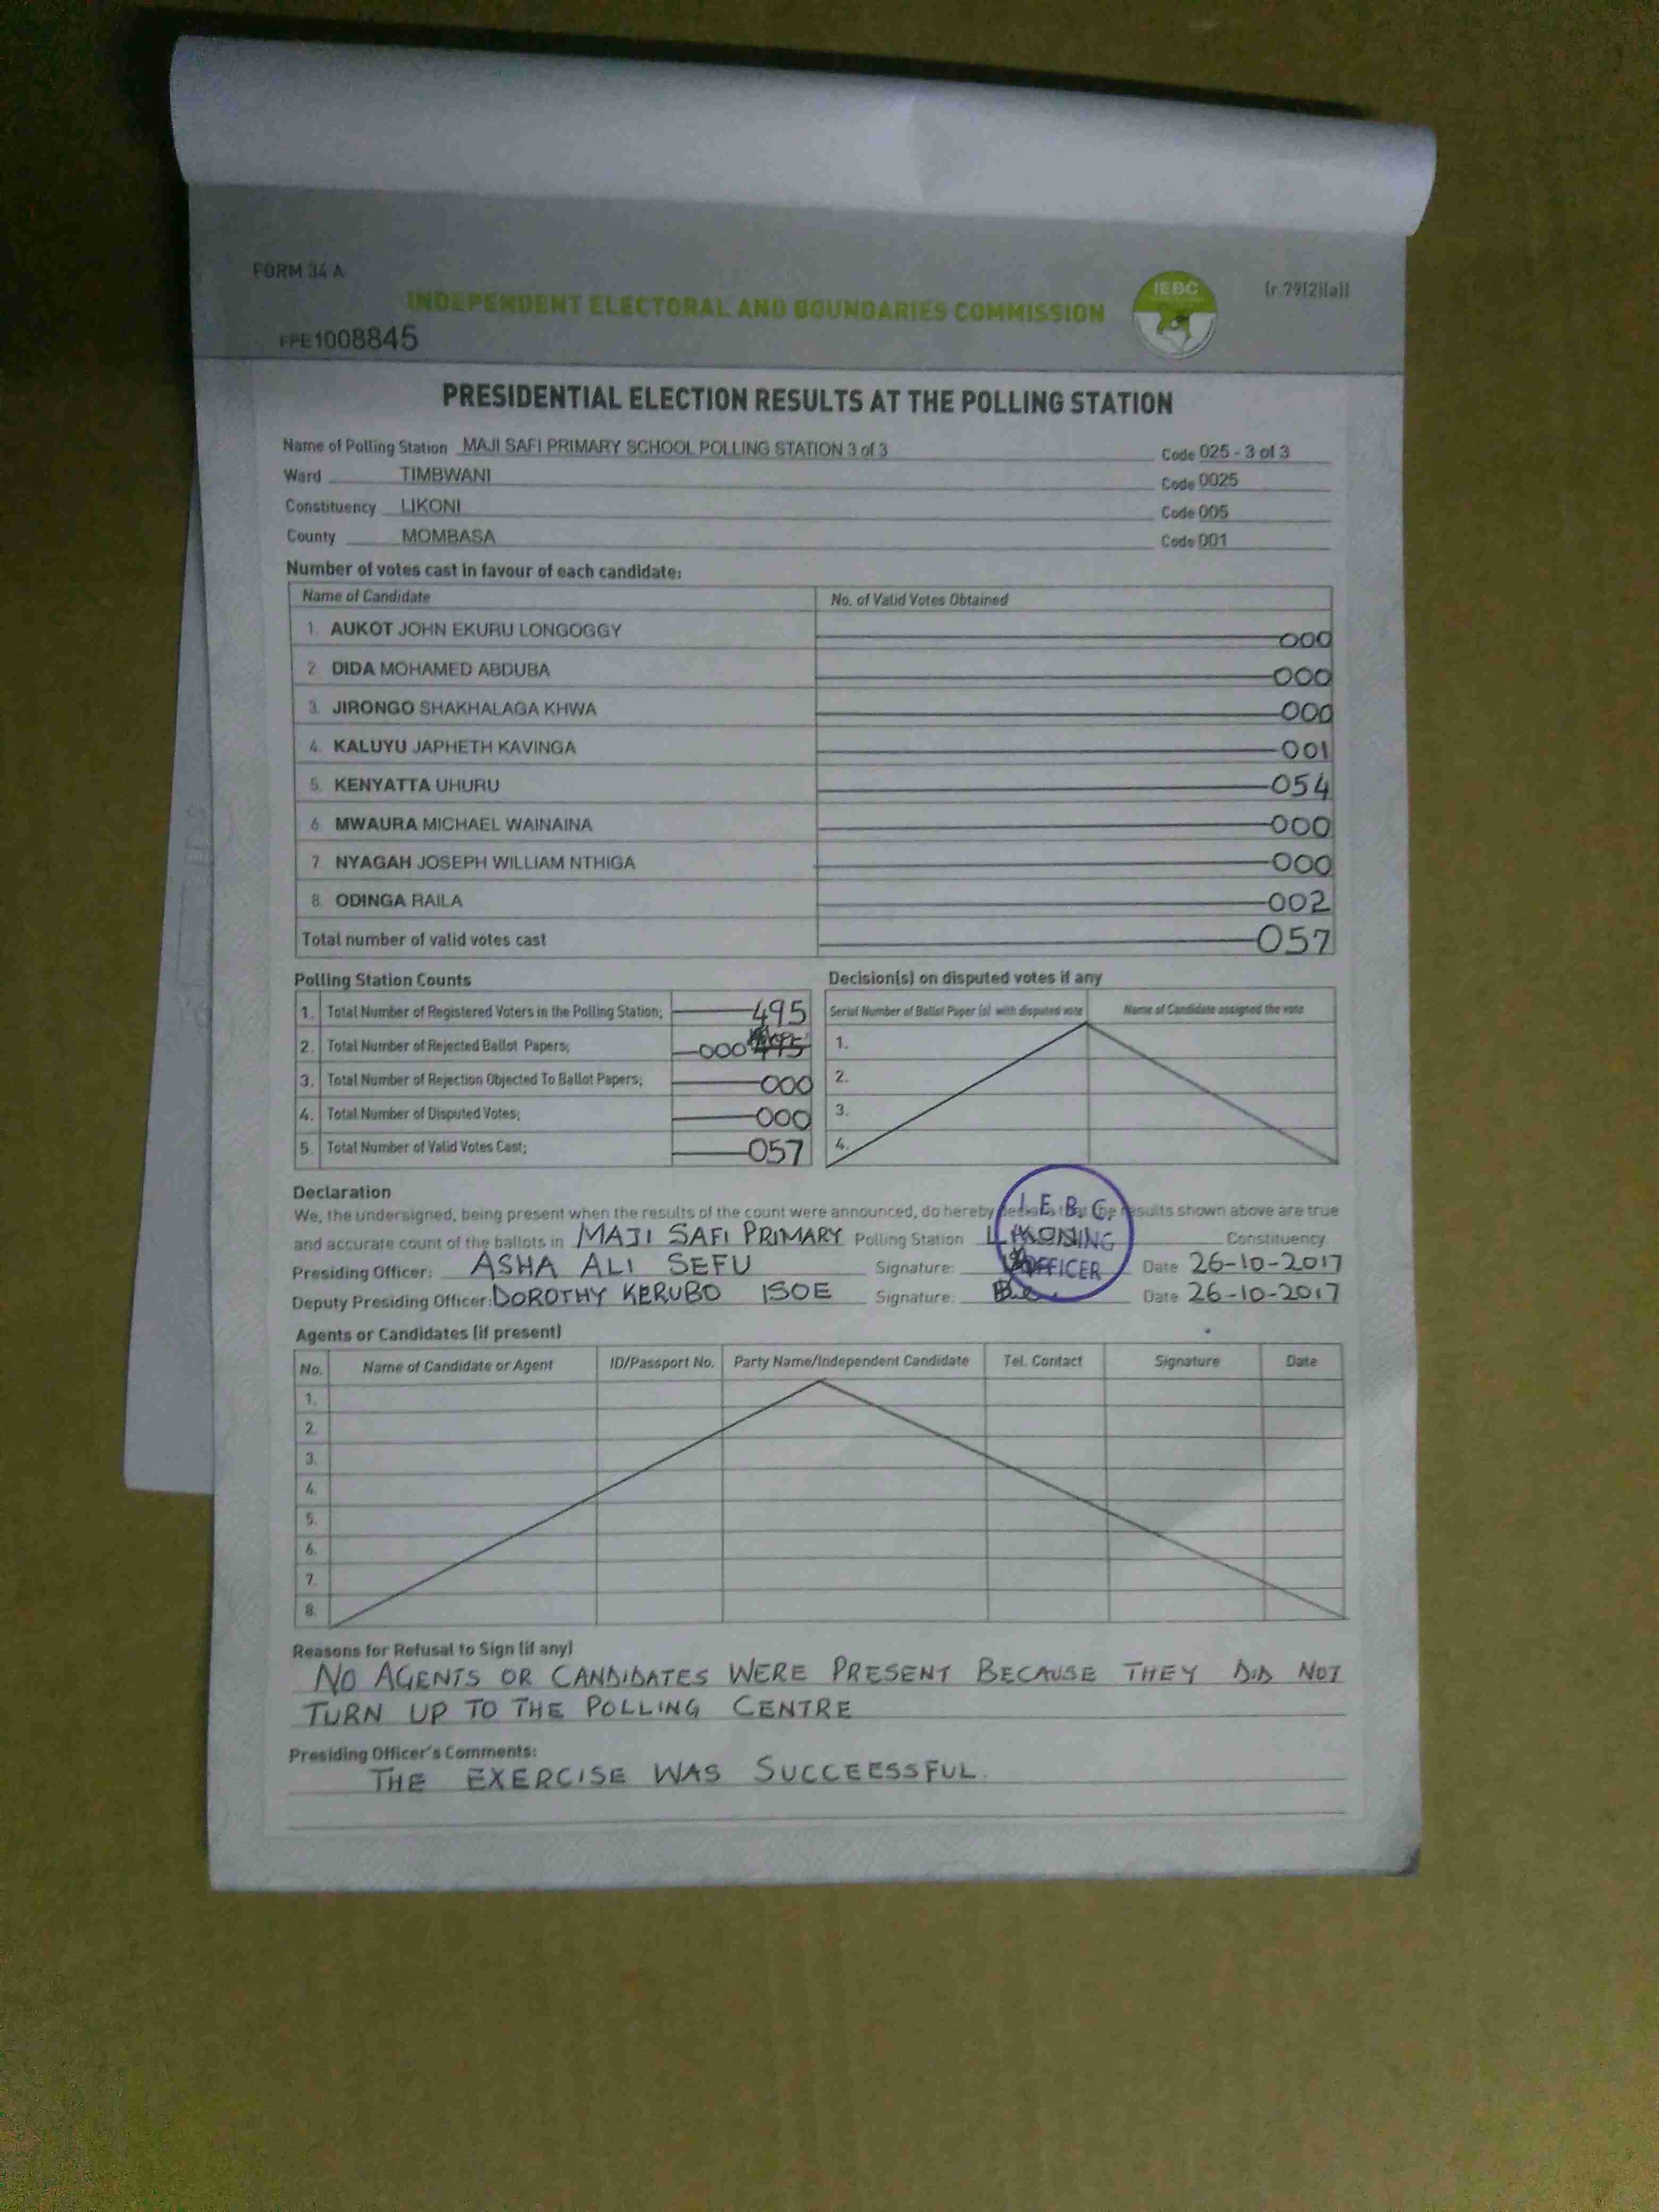 FORM 34 A
(r.79(2)(a))
INDEPENDENT ELECTORAL AND BOUNDARIES COMMISSION
IEBC
FPE1008845
PRESIDENTIAL ELECTION RESULTS AT THE POLLING STATION
Name of Polling Station MAJI SAFI PRIMARY SCHOOL POLLING STATION 3 of 3 Code 025 - 3 of 3
Ward TIMBWANI Code 0025
Constituency LIKONI Code 005
County MOMBASA Code 001
Number of votes cast in favour of each candidate:
Name of Candidate No. of Valid Votes Obtained
1. AUKOT JOHN EKURU LONGOGGY 000
2. DIDA MOHAMED ABDUBA 000
3. JIRONGO SHAKHALAGA KHWA 000
4. KALUYU JAPHETH KAVINGA 001
5. KENYATTA UHURU 054
6. MWAURA MICHAEL WAINAINA 000
7. NYAGAH JOSEPH WILLIAM NTHIGA 000
8. ODINGA RAILA 002
Total number of valid votes cast 057
Polling Station Counts
1. Total Number of Registered Voters in the Polling Station; 495
2. Total Number of Rejected Ballot Papers; 000
3. Total Number of Rejection Objected To Ballot Papers; 000
4. Total Number of Disputed Votes; 000
5. Total Number of Valid Votes Cast; 057
Decision(s) on disputed votes if any
Serial Number of Ballot Paper (s) with disputed vote Name of Candidate assigned the vote
1.
2.
3.
4.
Declaration
We, the undersigned, being present when the results of the count were announced, do hereby declare that the results shown above are true
and accurate count of the ballots in MAJI SAFI PRIMARY Polling Station Constituency
Presiding Officer: ASHA ALI SEFU Signature: Date 26-10-2017
Deputy Presiding Officer: DOROTHY KERUBO ISOE Signature: Date 26-10-2017
I.E.B.C.
OFFICER
Agents or Candidates (if present)
No. Name of Candidate or Agent ID/Passport No. Party Name/Independent Candidate Tel. Contact Signature Date
1.
2.
3.
4.
5.
6.
7.
8.
Reasons for Refusal to Sign (if any)
NO AGENTS OR CANDIDATES WERE PRESENT BECAUSE THEY DID NOT
TURN UP TO THE POLLING CENTRE
Presiding Officer's Comments:
THE EXERCISE WAS SUCCEESSFUL.